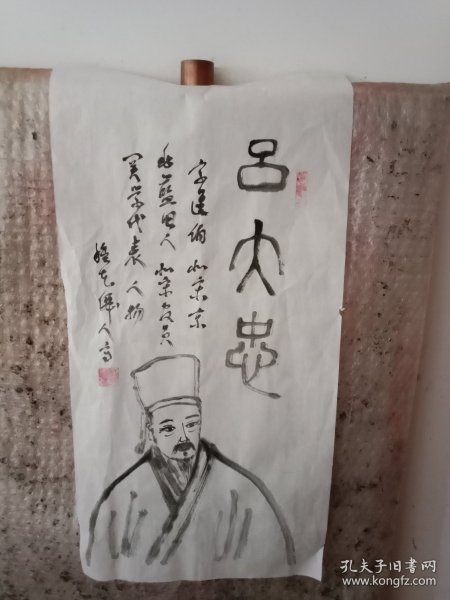 吕大忠
字进伯 北宋京
兆蓝田人 北宋官员
关学代表人物
孔夫子旧书网
www.kongfz.com